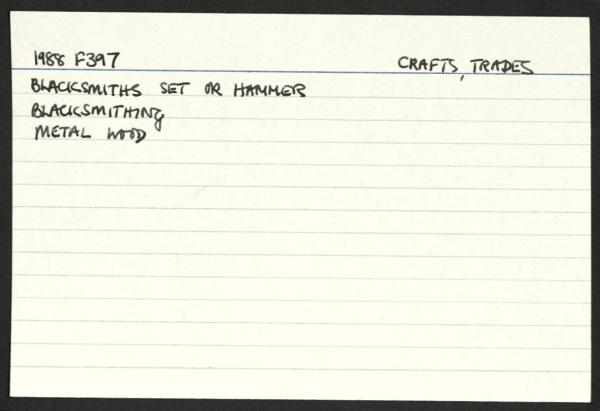 1988 F397 CRAFTS, TRADES
BLACKSMITHS SET OR HAMMER
BLACKSMITHING
METAL WOOD